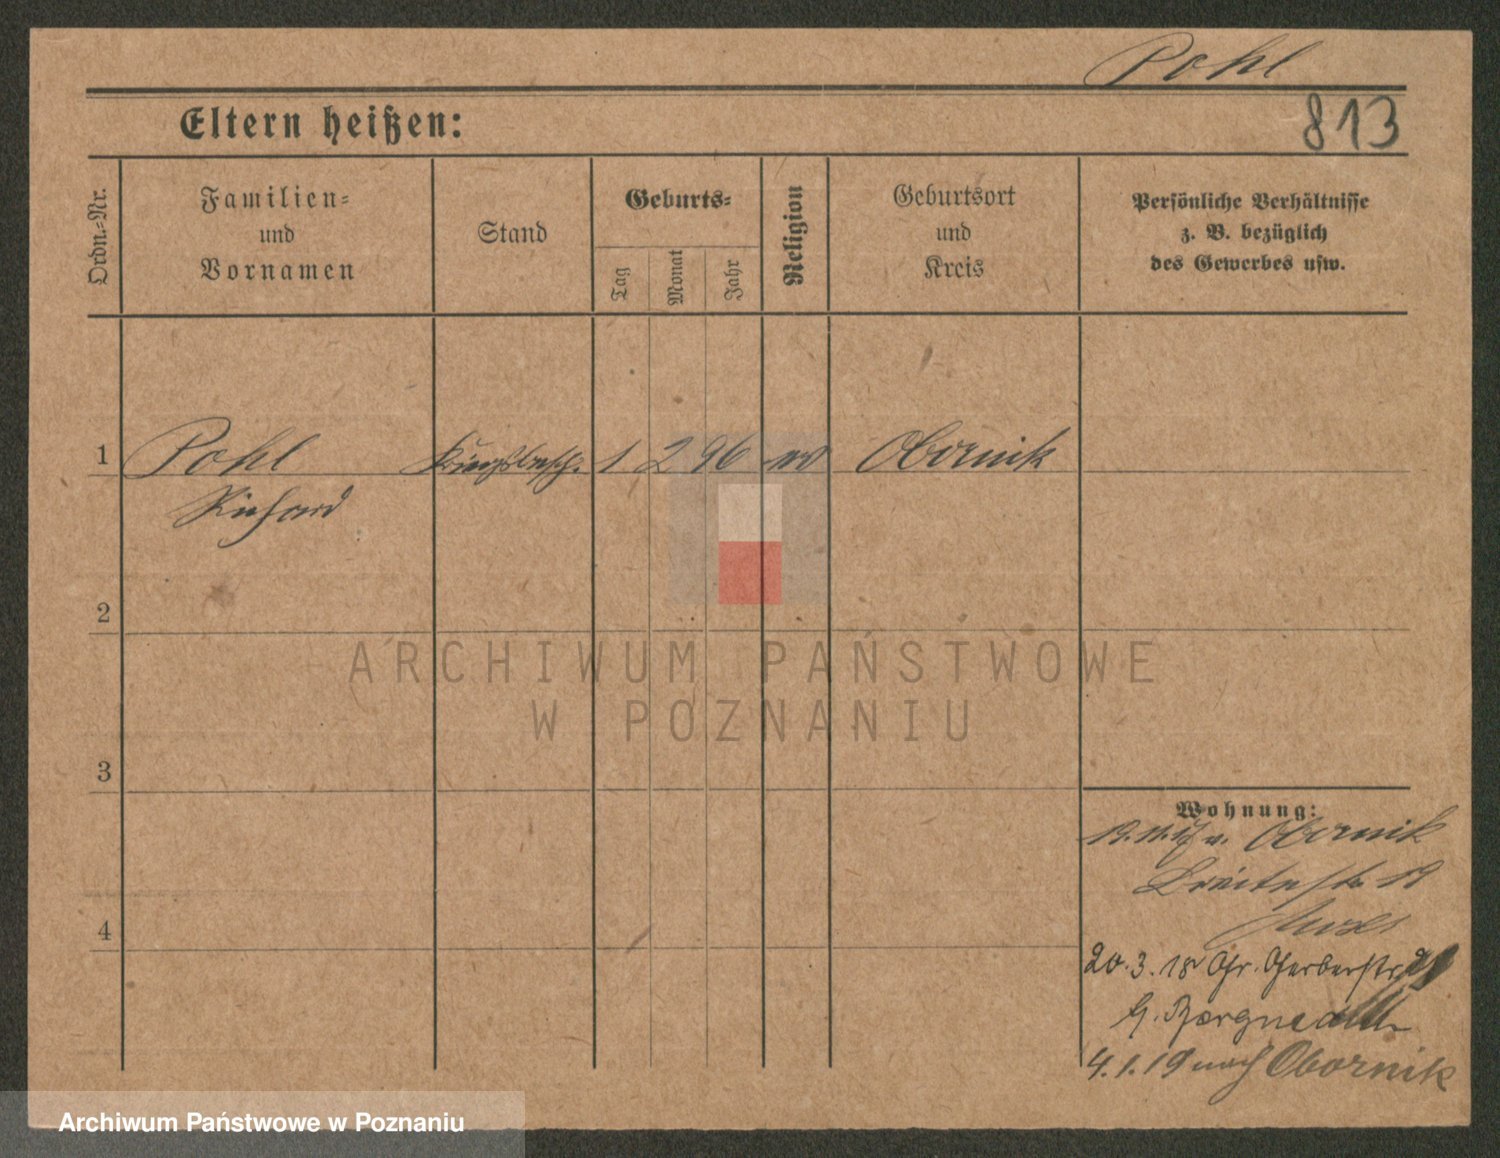 Pohl
813
Eltern heißen:
Ordn.-Nr.
Familien-
und
Vornamen
Stand
Geburts-
Tag
Monat
Jahr
Religion
Geburtsort
und
Kreis
Persönliche Verhältnisse
z. B. bezüglich
des Gewerbes usw.
1 Pohl 1 2 96 ev Obornik
Richard
2
ARCHIWUM PAŃSTWOWE
W POZNANIU
3
Wohnung:
19.11.17 v. Obornik
Breitestr 19
4
20.3.18 Gr. Gerberstr.
4.1.19 nach Obornik
Archiwum Państwowe w Poznaniu